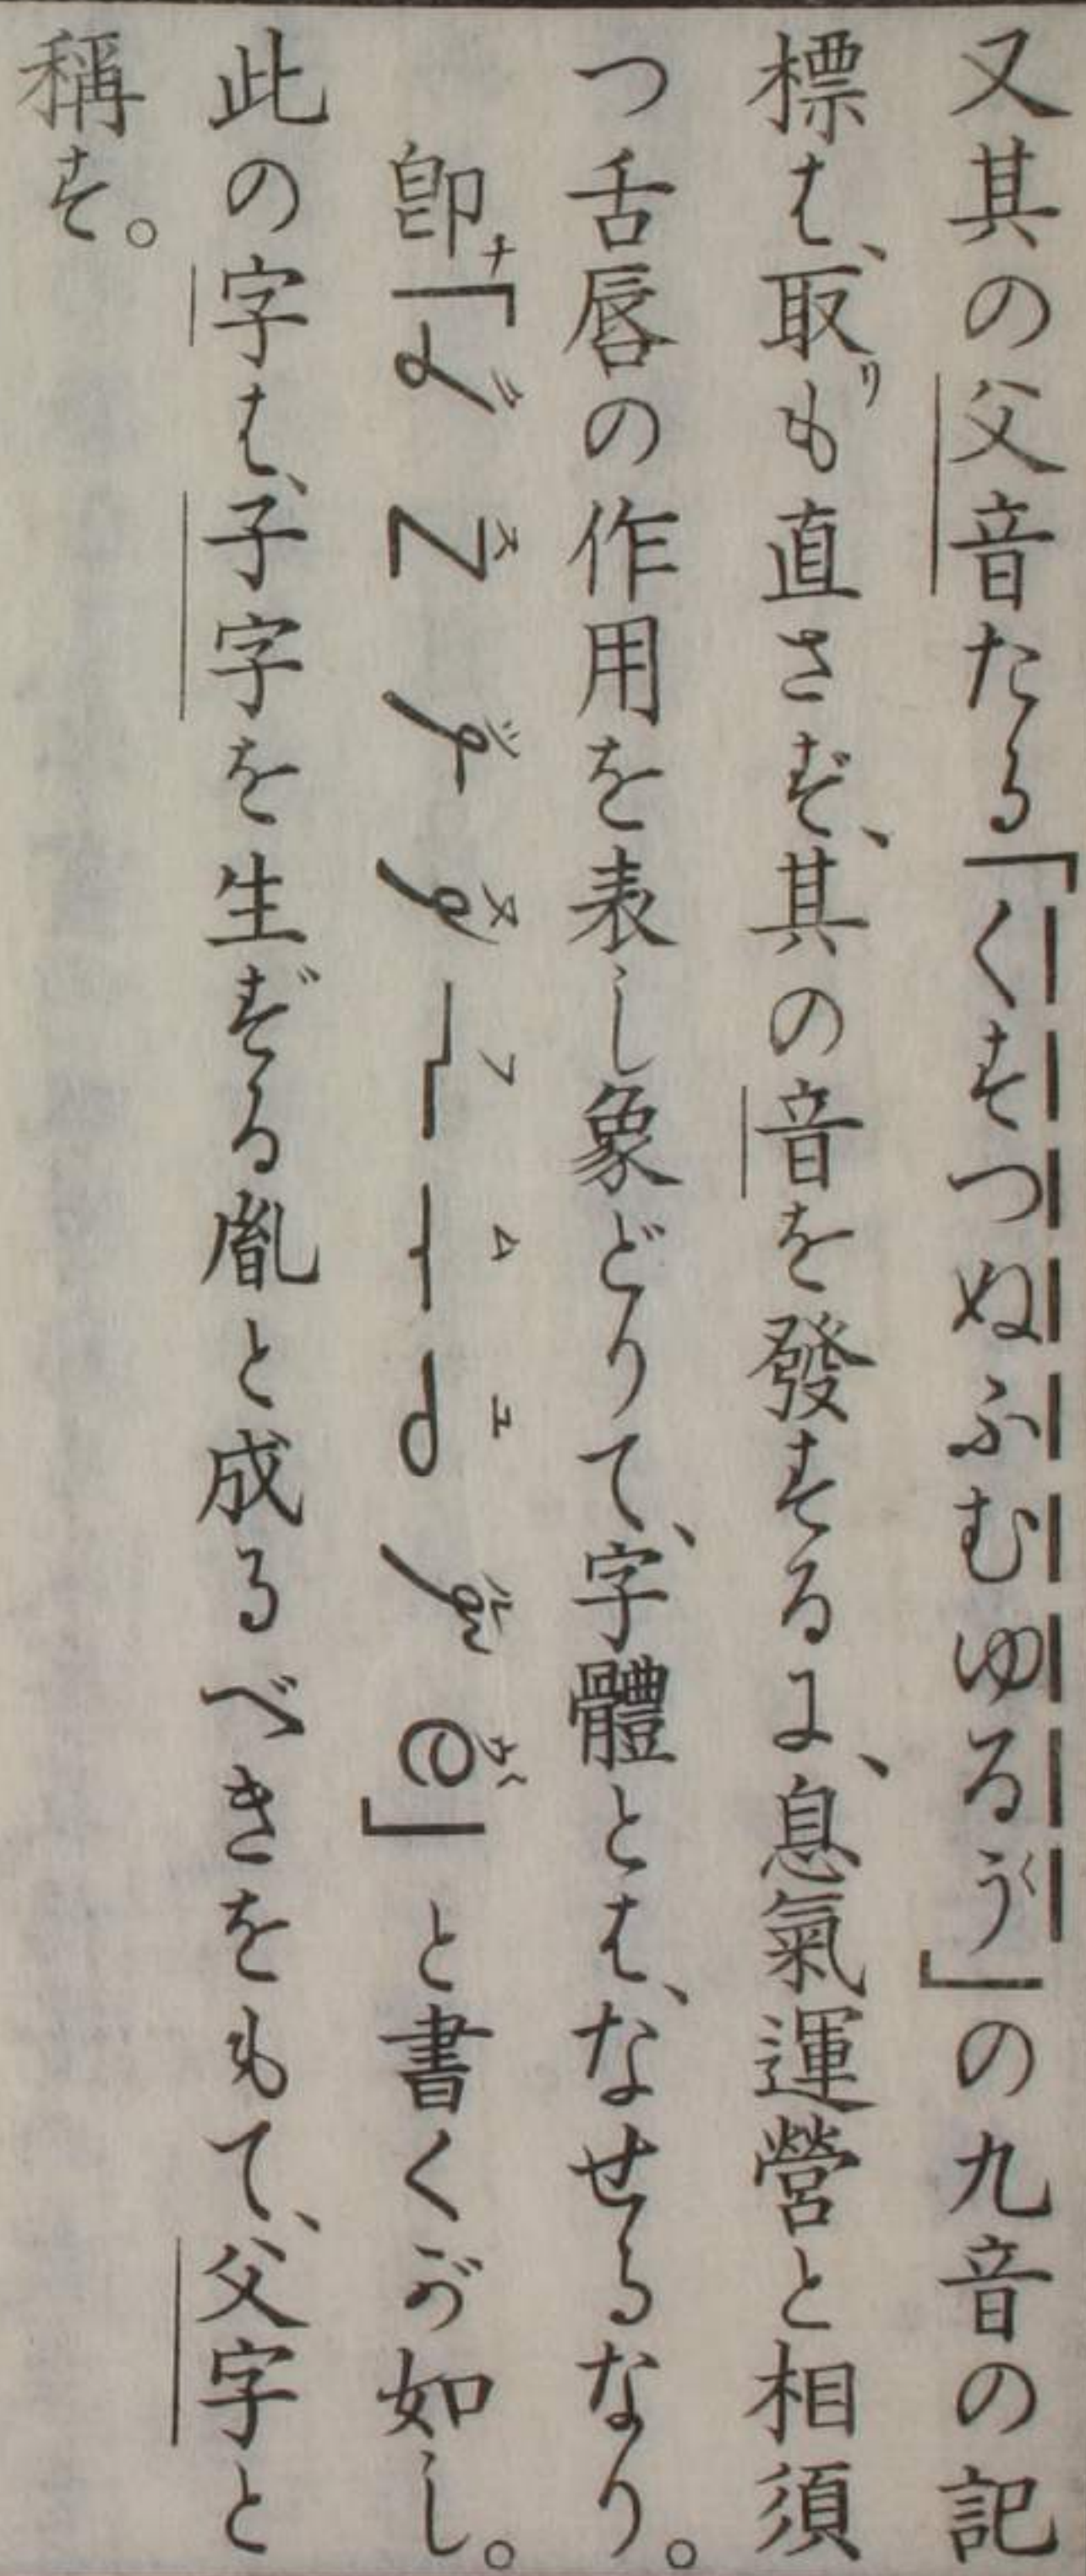 又其の父音たる「くすつぬふむゆるう」の九音の記
標は、取も直さず、其の音を發するに、息氣運營と相須
つ舌唇の作用を表し象どりて、字體とは、なせるなり。
卽「」と書くが如し。
此の字は、子字を生ずる胤と成るべきをもて、父字と
稱す。